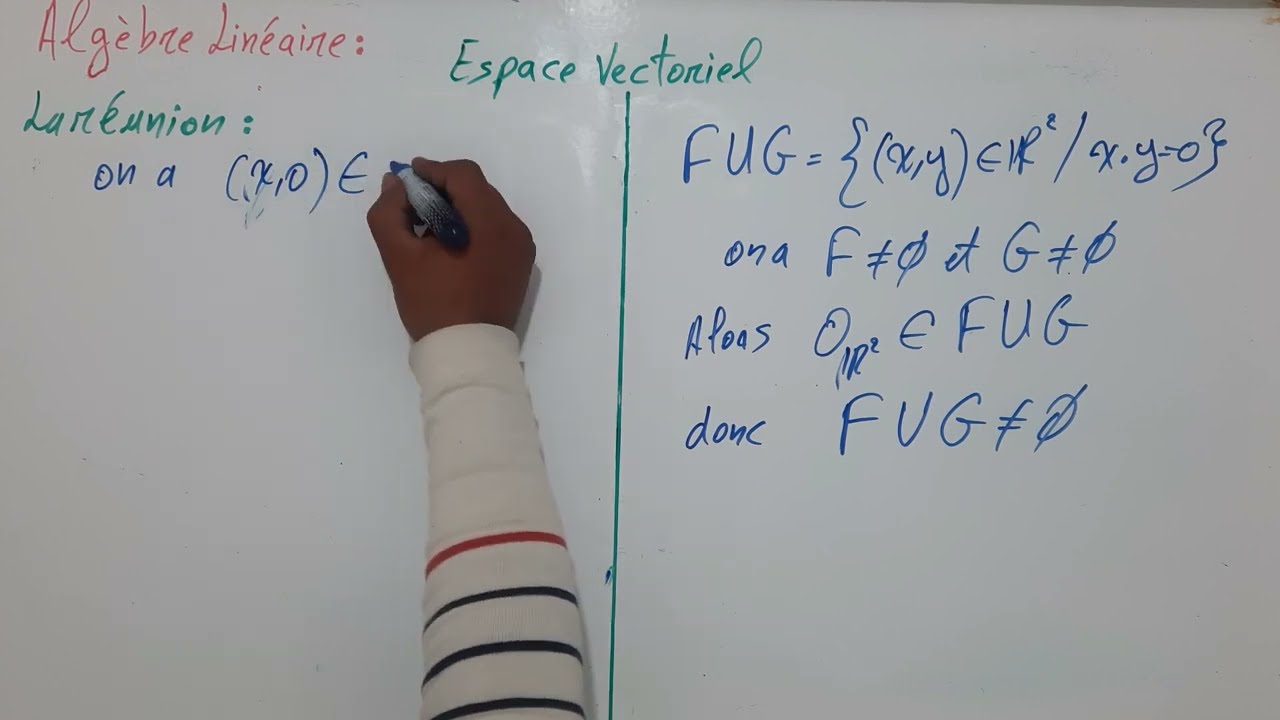 Algèbre Linéaire :
Espace Vectoriel
La réunion :
on a (x,0) ∈
F∪G = {(x,y) ∈ ℝ² / x.y=0}
on a F ≠ ∅ et G ≠ ∅
Alors 0_ℝ² ∈ F∪G
donc F∪G ≠ ∅